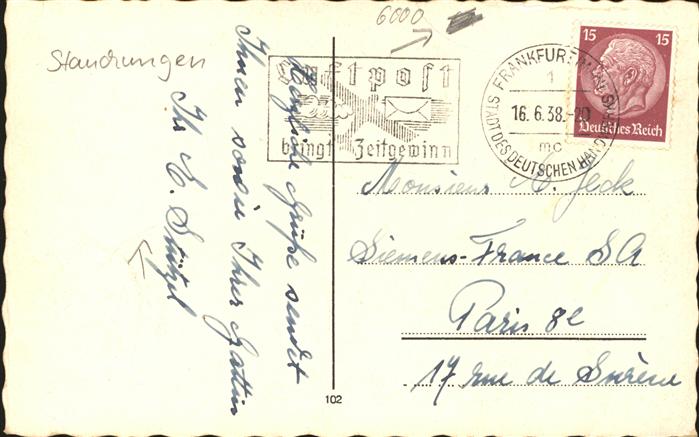 6000
Standrungen
Herzliche Grüße sendet
Ihnen sowie Ihrer Gattin
Ihr E. Stützel
Luftpost
bringt Zeitgewinn
FRANKFURT (MAIN)
1
16.6.38.-20
mc
STADT DES DEUTSCHEN HANDWERKS
15 15
Deutsches Reich
Monsieur A. Jeck
Siemens-France S A
Paris 8e
17 rue de Surène
102